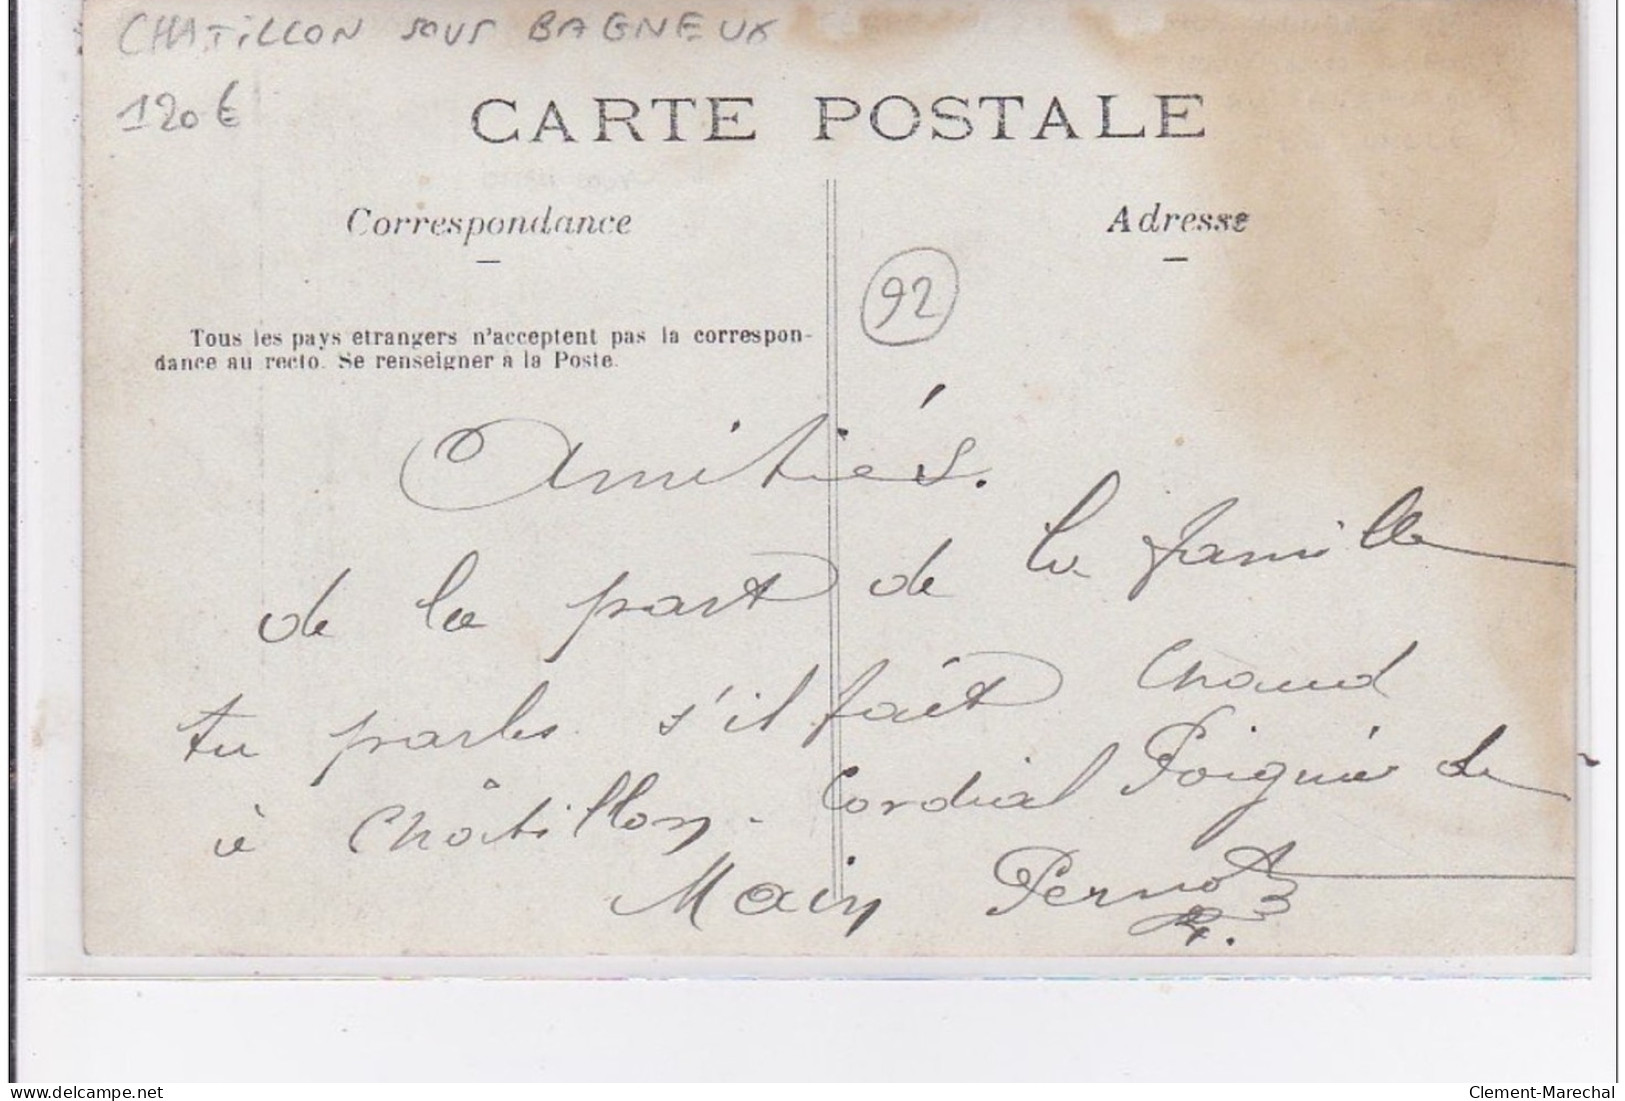 CHATiLLON sous BAGNEUX
120€
CARTE POSTALE
Correspondance
Adresse
92
Tous les pays etrangers n'acceptent pas la correspon-
dance au recto. Se renseigner à la Poste.
Amitiés.
de la part de la famille
tu parles s'il fait chaud
à Châtillon. Cordial Poignée de
Main Pernot
delcampe.net
Clement-Marechal